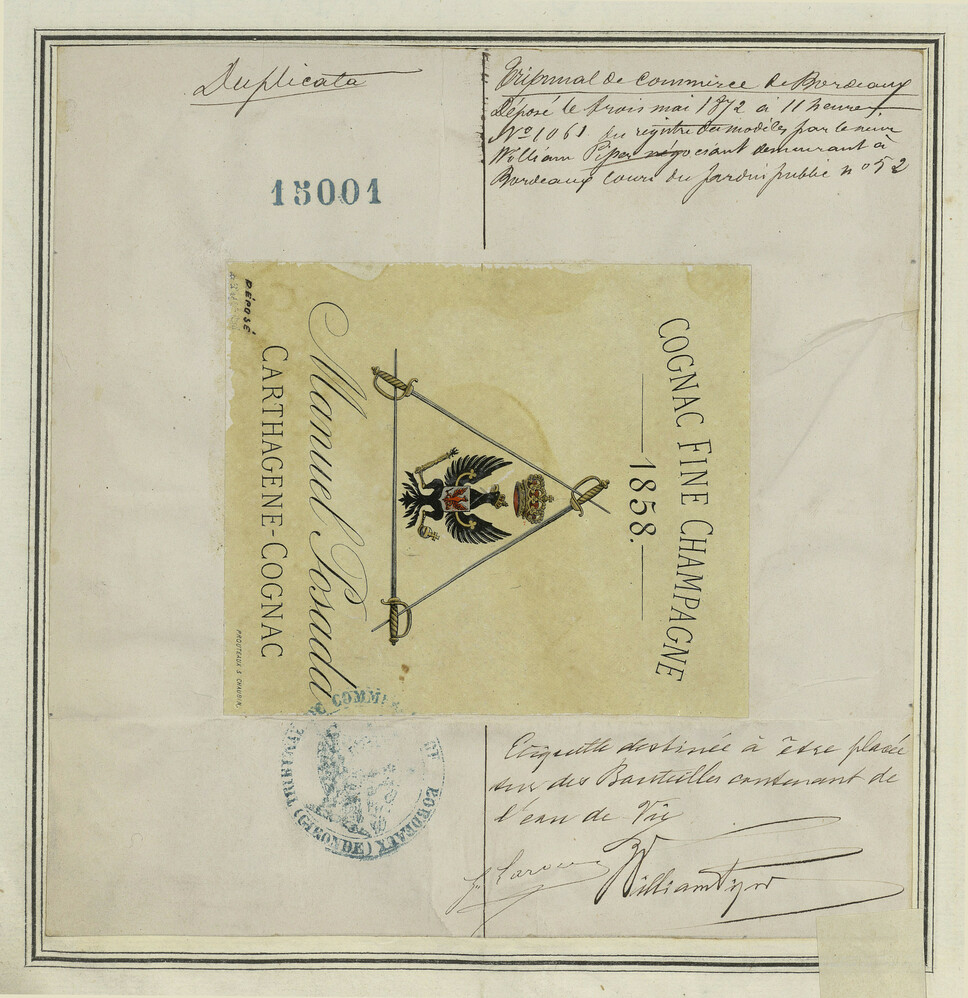 Duplicata
15001
Tribunal de Commerce de Bordeaux
Déposé le trois mai 1872 à 11 heures
No 1061 du registre des modèles par le sieur
William Piper négociant demeurant à
Bordeaux cours du Jardin public no 52
COGNAC FINE CHAMPAGNE
1858.
Manuel Posada
CARTHAGENE-COGNAC
DÉPOSÉ
PROUTEAUX & CHAUVIN
TRIBUNAL DE COMMERCE DE BORDEAUX (GIRONDE)
Etiquette destinée à être placée
sur des Bouteilles contenant de
l'eau de Vie
William